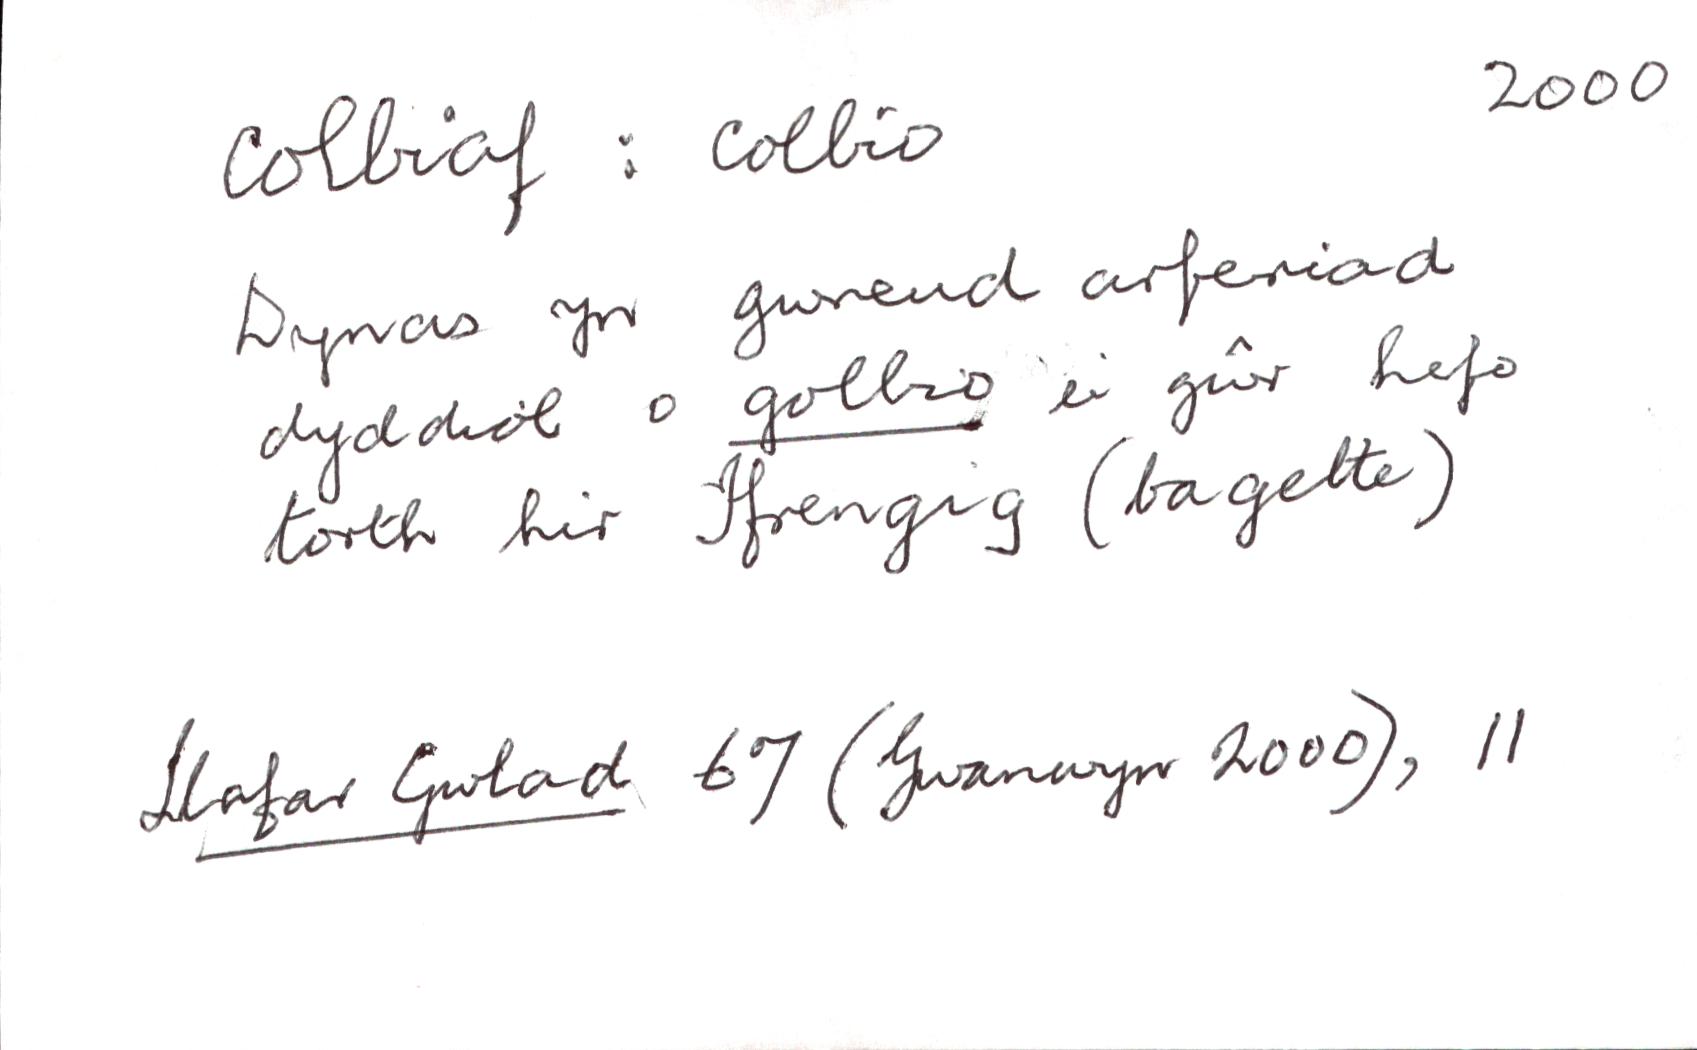 2000
colbiaf : colbio
Dynas yn gwneud arferiad
dyddiol o golbio ei gŵr hefo
torth hir Ffrengig (bagette)
Llafar Gwlad 67 (Gwanwyn 2000), 11